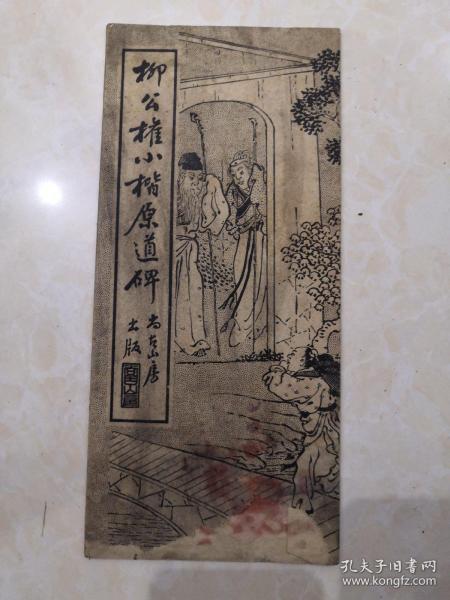 柳公权小楷原道碑
尚古山房
出版
孔夫子旧书网
www.kongfz.com